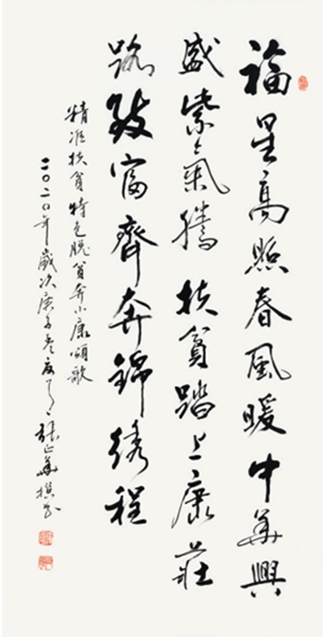 福星高照春風暖中華興
盛紫氣騰扶貧踏上康莊
路致富齊奔錦綉程
精准扶貧特色脱貧奔小康頌歌
二〇二〇年歲次庚子夏張華撰書